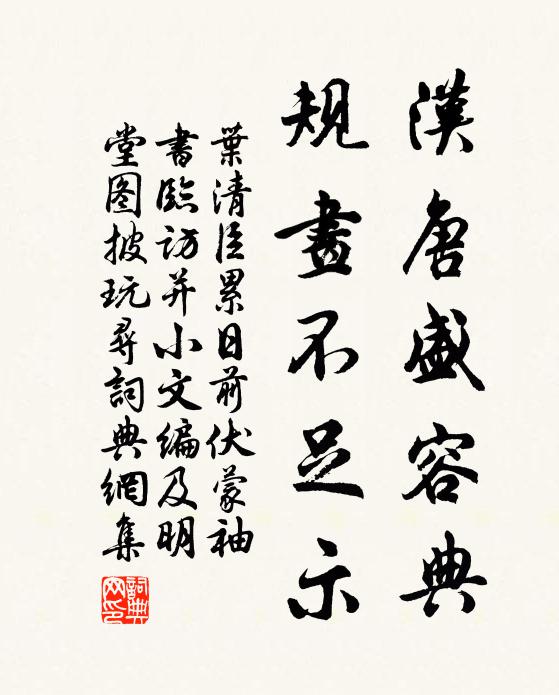 漢唐盛容典
規畫不足示
葉清臣累日前伏蒙袖
書臨訪并小文編及明
堂图披玩尋詞典網集
詞典
网印